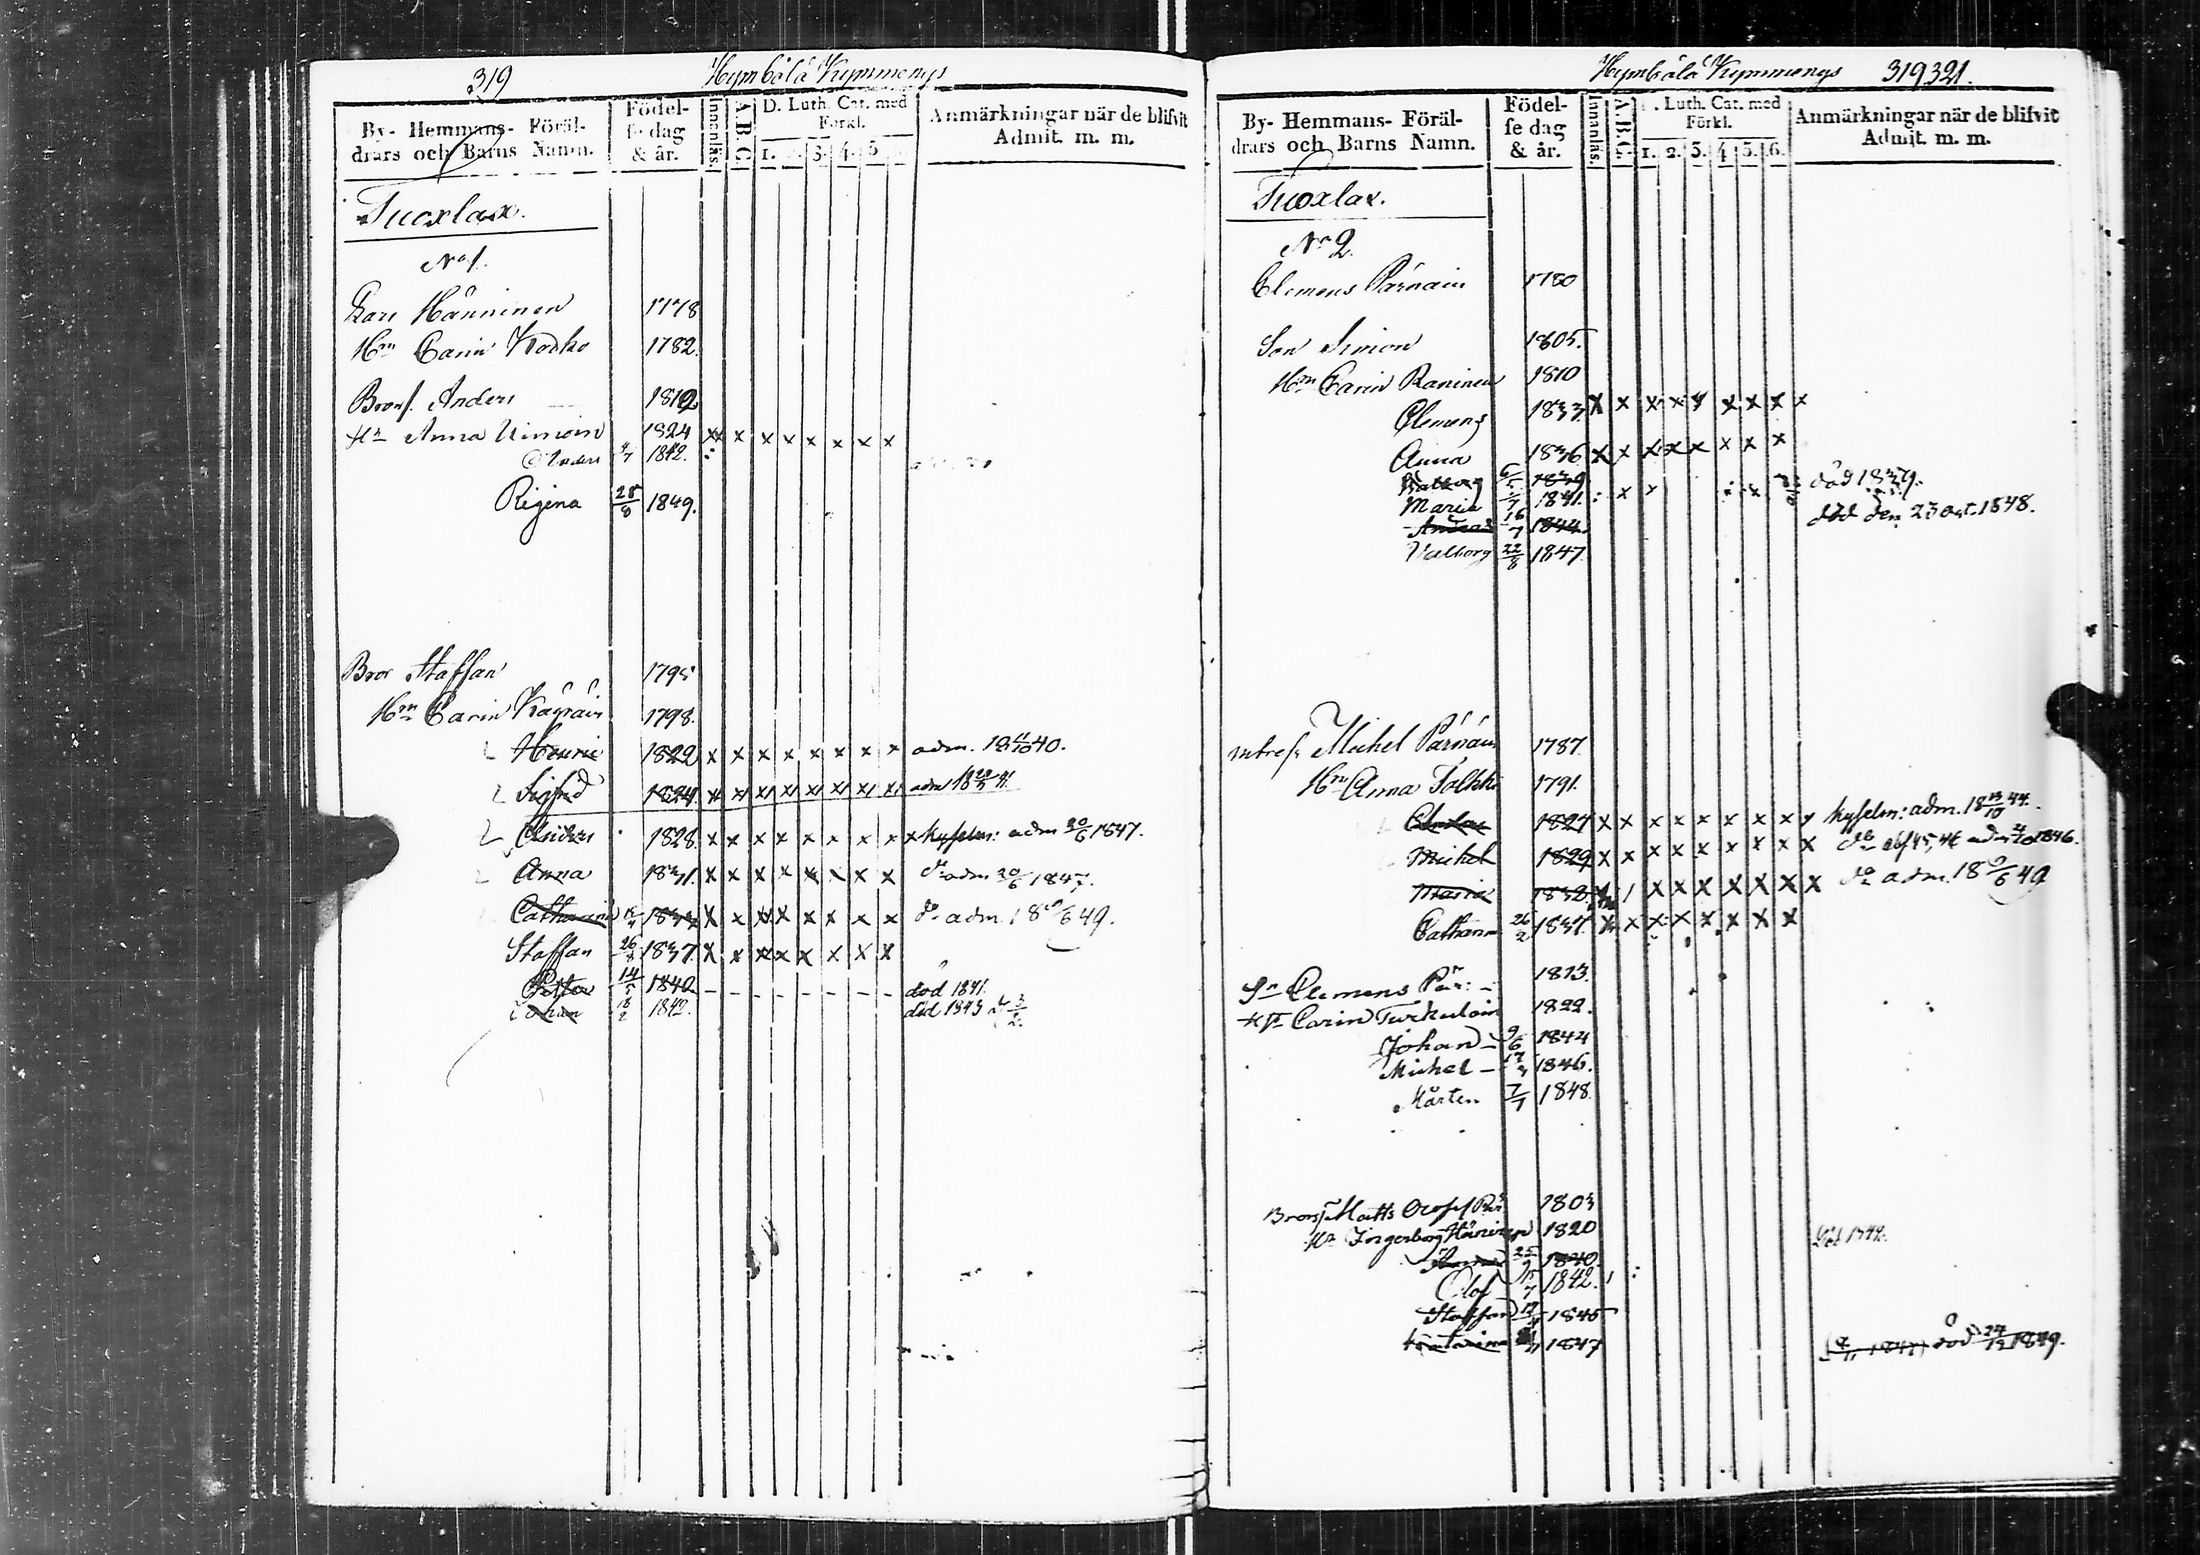 319 Hymbölä Kymmenys
By- Hemmans- Föräl-
drars och Barns Namn.
Födel-
se dag
& år.
Innanläs.
A.B.C.
D. Luth. Cat. med
Förkl.
1. 3. 4. 5
Anmärkningar när de blifvit
Admit. m. m.
Tuoxlax.
No 1.
Lars Hänninen 1778
Hm Carin Kocko 1782.
Brors. Anders 1819
Hn Anna 1824 x x x x x x x x
Anders 4/7 1842. :
Regina 28/8 1849.
Bror Staffan 1795
Hm Carin 1798.
Henric 1822 x x x x x x x x adm. 18 40.
Sigfrid 1824. x x x x x x x x adm 18 41
Anders 1828 x x x x x x x x x adm 20/6 1847.
Anna 1831. x x x x x x x x do adm 20/6 1847.
Catharina 1834 x x x x x x x x do adm. 18 /6 49.
Staffan 26/8 1837. x x x x x x x x
Petter 14/5 1840 - - - - - - - - död 1841.
Johan 18/2 1842. död 1843
Hymbölä Kymmenys 319 321.
By- Hemmans- Föräl-
drars och Barns Namn.
Födel-
se dag
& år.
Innanläs.
A.B.C.
. Luth. Cat. med
Förkl.
1. 2. 3. 4 5. 6.
Anmärkningar när de blifvit
Admit. m. m.
Tuoxlax.
No 2.
Clemens Pärnäin 1780
Son Simon 1805.
Hm Carin Raninen 1810
Clemens 1833 x x x x x x x x x
Anna 1836 x x x x x x x x
Valborg 6/5 1839 död 1839.
Maria 1841. : x x
Anders 16/7 1844. död den 23 oct. 1848.
Valborg 22/8 1847.
Michel Pärnäin 1787.
Hm Anna Tolkki 1791.
1827 x x x x x x x x x adm. 18 44.
Michel 1829 x x x x x x x x x do 45, 46 adm 1846.
Maria 1832. x x x x x x x x do adm. 18 /6 49
Catharina 26/2 1837. x x x x x x x x
Sn Clemens Pär: - 1813.
Hn Carin Turkulain 1822.
Johan - 9/6 1844
Michel - 1846.
Mårten 7/7 1848.
Brors. Matts Olofss. Pär 1803
Hn Ingerborg Häninen 1820
Anna 25/9 1840. död 1842.
Olof 1842. :
Staffan 1845
Katarina 1847 död 24/12 1849.